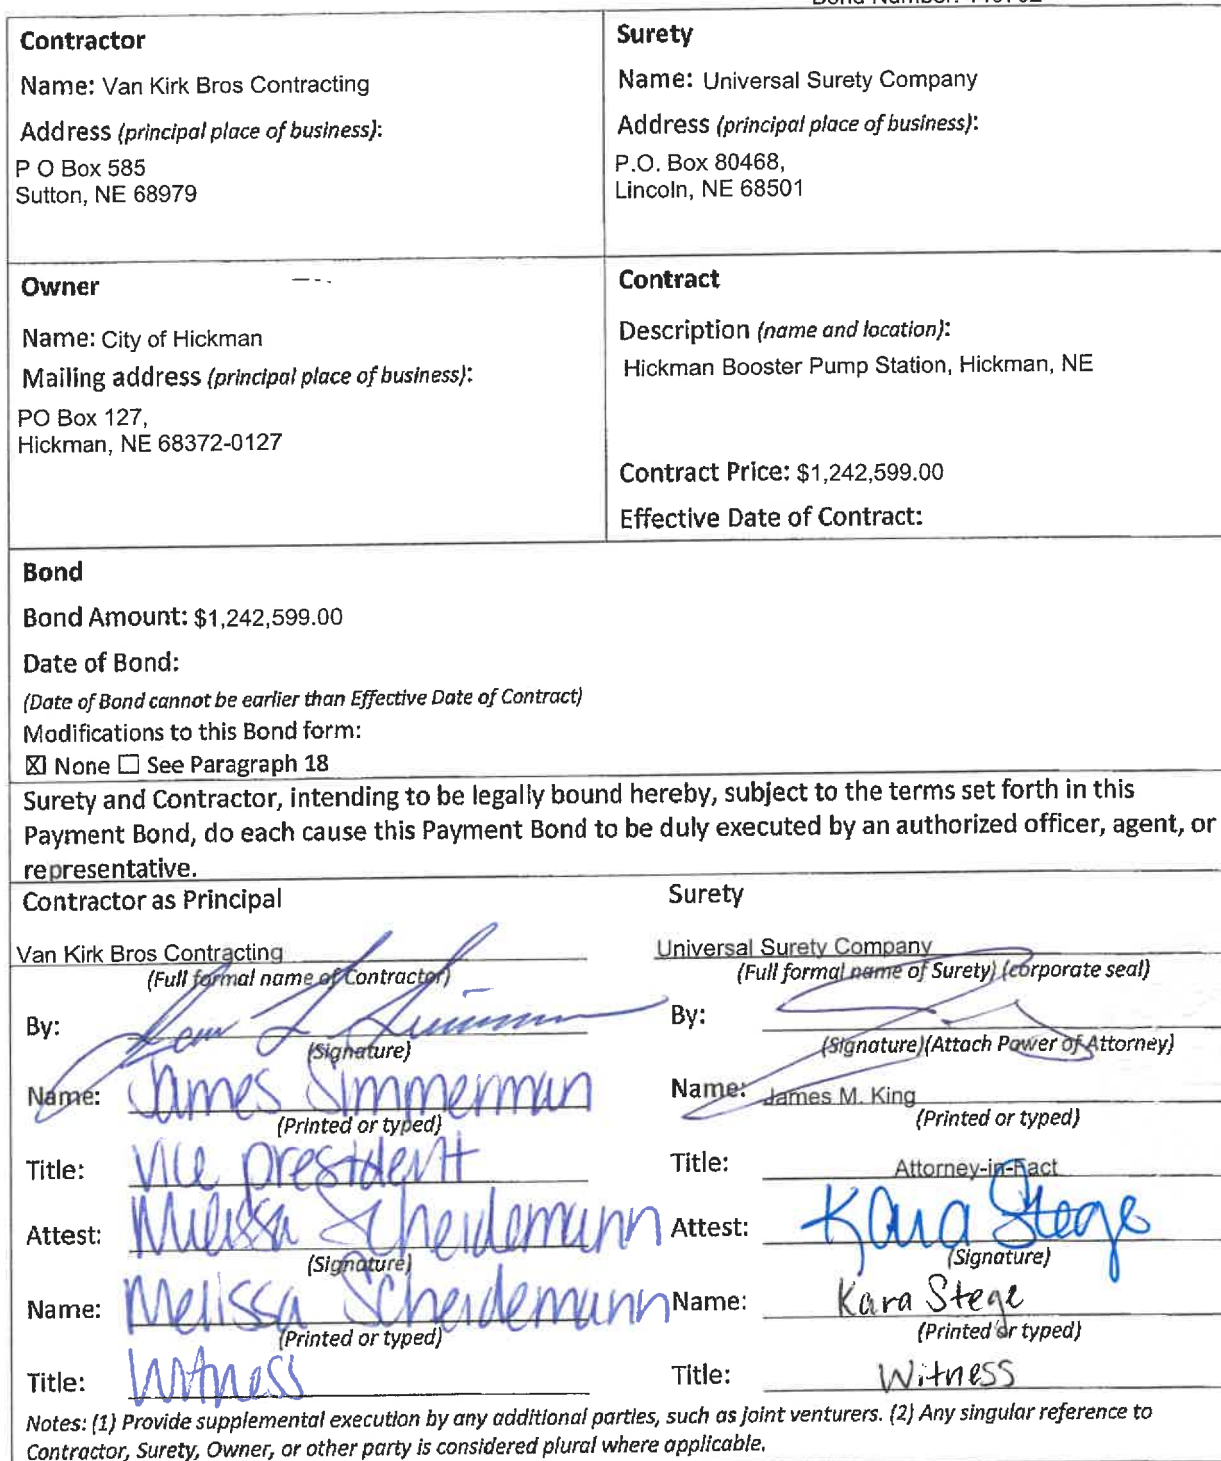 Contractor
Name: Van Kirk Bros Contracting
Address (principal place of business):
P O Box 585
Sutton, NE 68979
Surety
Name: Universal Surety Company
Address (principal place of business):
P.O. Box 80468,
Lincoln, NE 68501
Owner
Name: City of Hickman
Mailing address (principal place of business):
PO Box 127,
Hickman, NE 68372-0127
Contract
Description (name and location):
Hickman Booster Pump Station, Hickman, NE
Contract Price: $1,242,599.00
Effective Date of Contract:
Bond
Bond Amount: $1,242,599.00
Date of Bond:
(Date of Bond cannot be earlier than Effective Date of Contract)
Modifications to this Bond form:
☒ None ☐ See Paragraph 18
Surety and Contractor, intending to be legally bound hereby, subject to the terms set forth in this
Payment Bond, do each cause this Payment Bond to be duly executed by an authorized officer, agent, or
representative.
Contractor as Principal
Van Kirk Bros Contracting
(Full formal name of Contractor)
By:
(Signature)
Name: James Simmerman
(Printed or typed)
Title: Vice president
Attest: Melissa Scheidemann
(Signature)
Name: Melissa Scheidemann
(Printed or typed)
Title: Witness
Surety
Universal Surety Company
(Full formal name of Surety) (corporate seal)
By:
(Signature)(Attach Power of Attorney)
Name: James M. King
(Printed or typed)
Title: Attorney-in-Fact
Attest: Kara Stege
(Signature)
Name: Kara Stege
(Printed or typed)
Title: Witness
Notes: (1) Provide supplemental execution by any additional parties, such as joint venturers. (2) Any singular reference to
Contractor, Surety, Owner, or other party is considered plural where applicable.